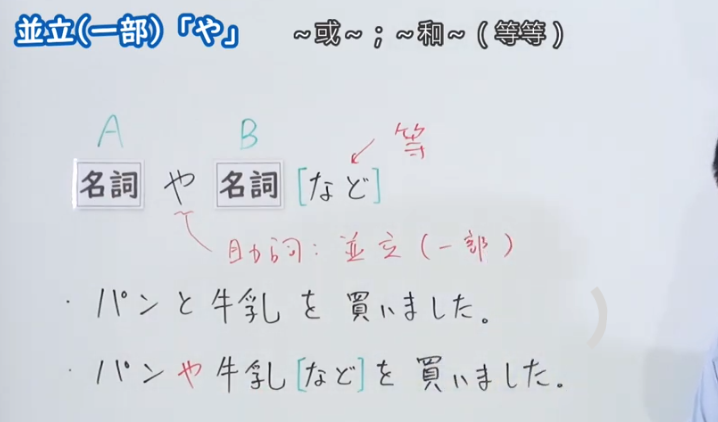 並立(一部)「や」 ~或~;~和~(等等)
A B 等
名詞 や 名詞 [など]
助詞:並立(一部)
・パンと牛乳を買いました。
・パンや牛乳[など]を買いました。